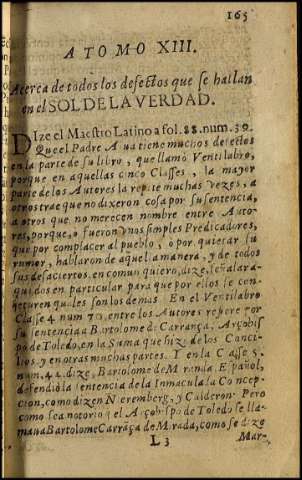 165
ATOMO XIII.
Acerca de todos los defectos que se hallan
en el SOL DE LA VERDAD.
DIze el Maestro Latino a fol. 88. num. 39.
Que el Padre Aua tiene muchos defectos
en la parte de su libro, que llamó Ventilabro,
porque en aquellas cinco Classes, la mayor
parte de los Autores la repite muchas vezes, a
otros trae que no dixeron cosa por su sentencia,
a otros que no merecen nombre entre Auto-
res, porque, o fueron vnos simples Predicadores,
que por complacer al pueblo, o por quietar su
rumor, hablaron de aquella manera, y de todos
sus desaciertos, en comun quiero, dize, señalar a-
qui dos en particular para que por ellos se con-
jeturen quales son los demas. En el Ventilabro
Classe 4 num 70, entre los Autores refiere por
su sentencia a Bartolome de Carrança, Arçobis
po de Toledo, en la Suma que hizo de los Conci-
lios, y en otras muchas partes. I en la Classe 5.
num. 44. dize, Bartolome de Miranda Español,
defendiò la sentencia de la Inmaculada Concep-
cion, como dizen Nieremberg, y Calderon. Pero
como sea notorio q̃ el Arçobispo de Toledo se lla-
maua Bartolome Carrãça de Mirãda, como se dize
L 3
Mar-